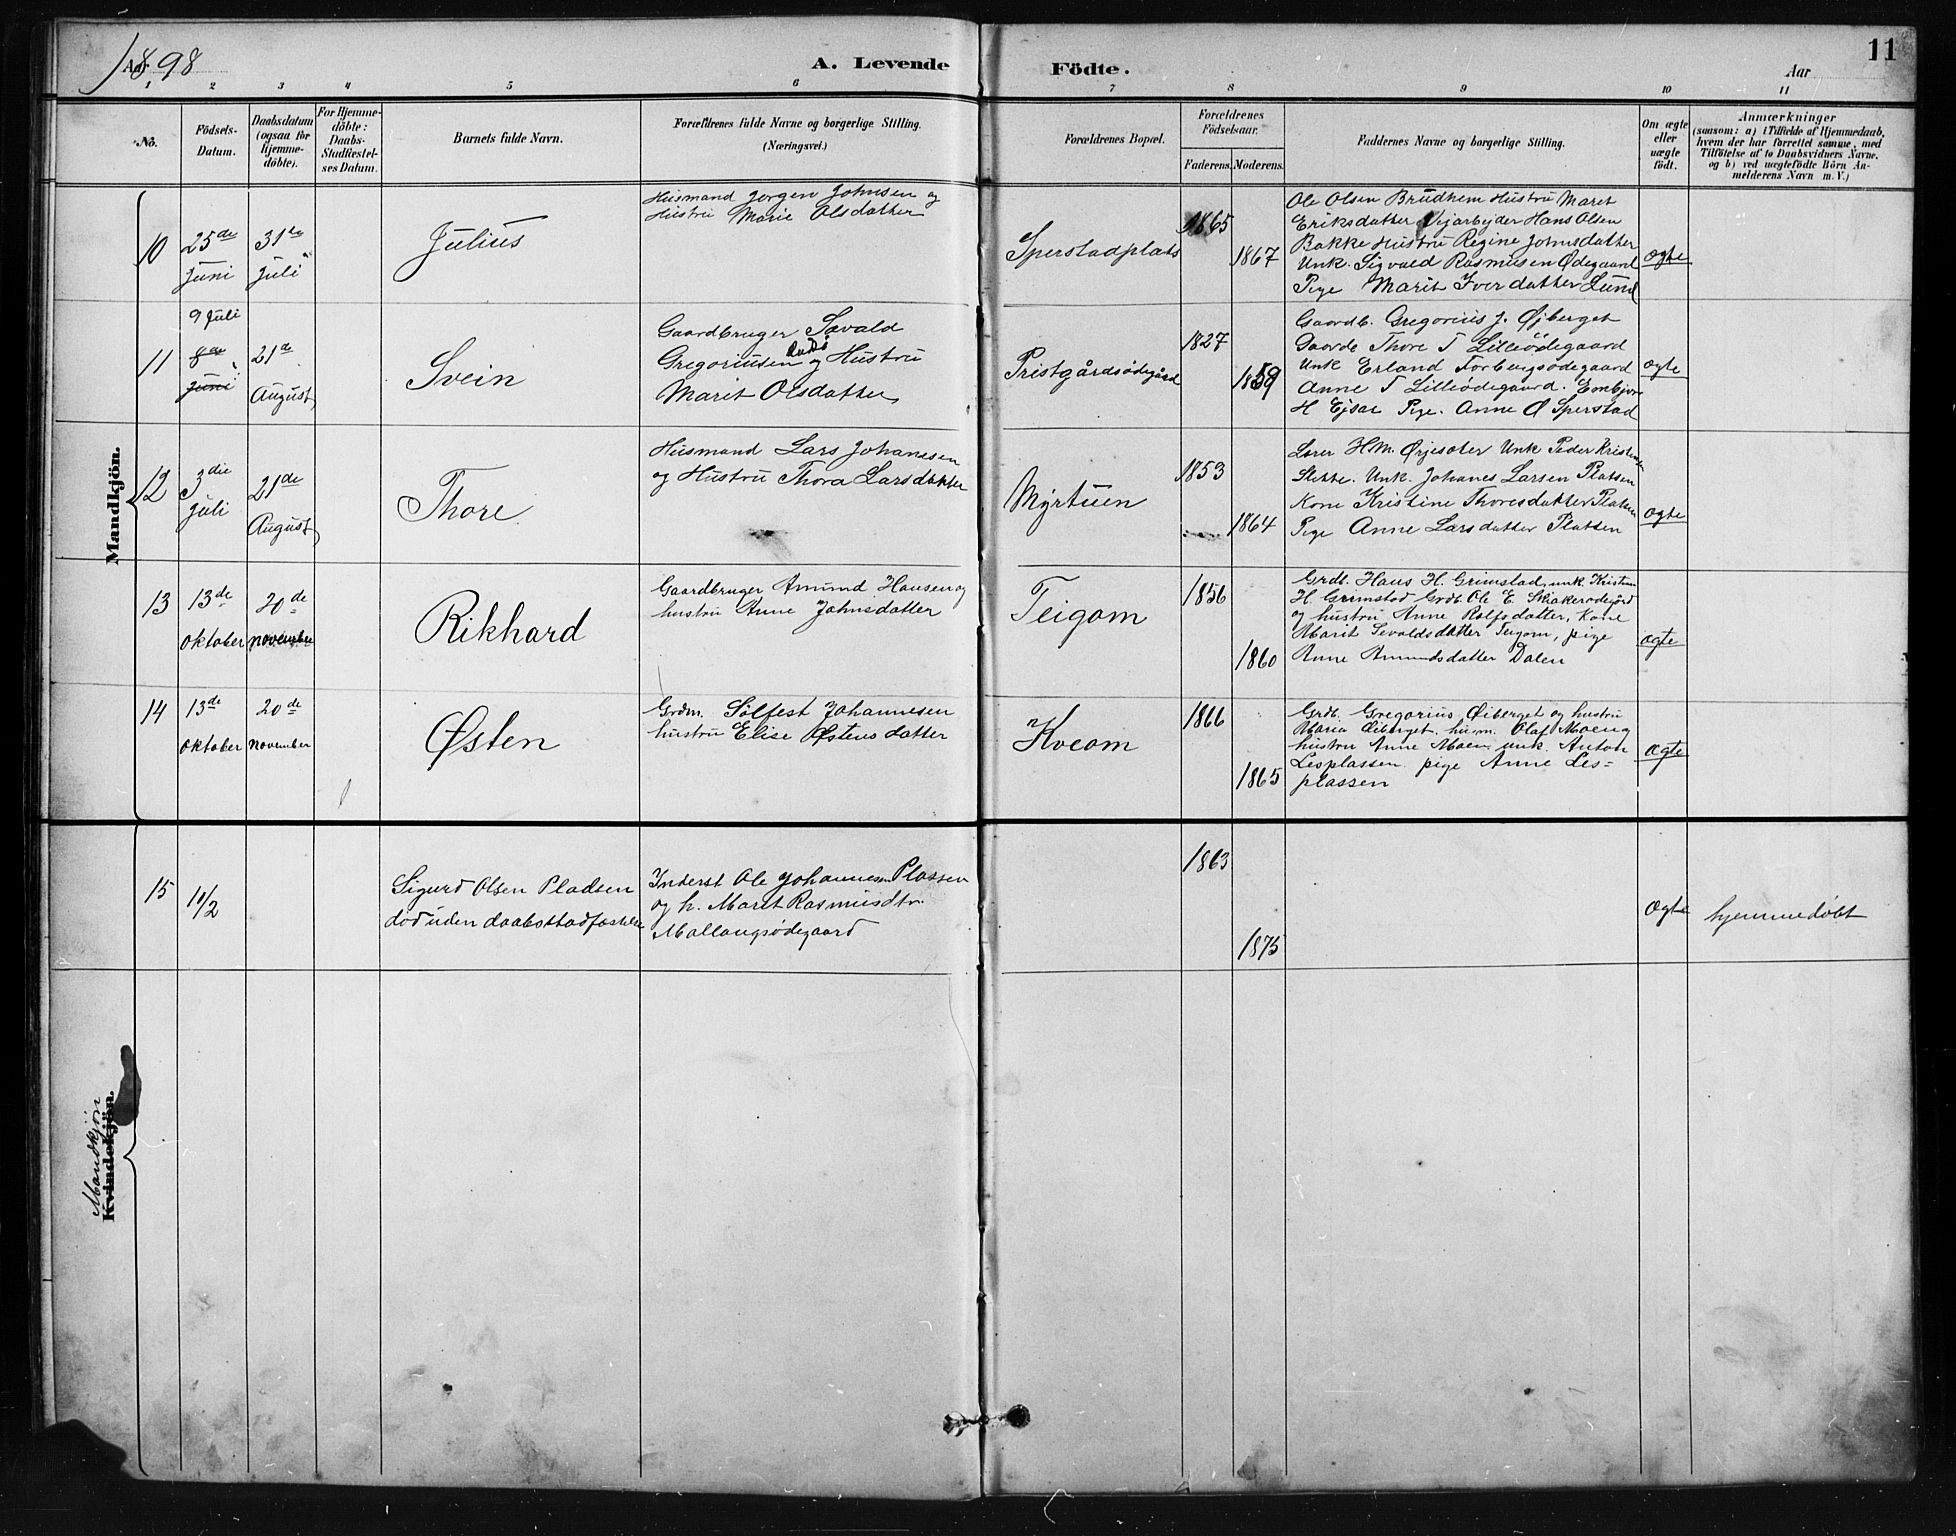 1898
Aar
A. Levende
Födte.
Aar
11
1 2 3 4 5 6 7 8 9 10 11
No.
Födsels-
Datum.
Daabsdatum
(ogsaa for
Hjemme-
döbte).
For Hjemme-
döbte:
Daabs-
Stadfæstel-
ses Datum.
Barnets fulde Navn.
Forældrenes fulde Navne og borgerlige Stilling.
(Næringsvei.)
Forældrenes Bopæl.
Forældrenes
Födselsaar.
Faderens.
Moderens.
Faddernes Navne og borgerlige Stilling.
Om ægte
eller
uægte
födt.
Anmærkninger
(saasom: a) i Tilfælde af Hjemmedaab,
hvem der har forrettet samme, med
Tilföielse af to Daabsvidners Navne,
og b) ved uægtefödte Börn An-
melderens Navn m. V.)
Mandkjön.
10
25de
Juni
31te
Juli
Julius
Husmand Jørgen Johnsen og
Hustru Marie Olsdatter
Sperstadplats
1865
1867
Ole Olsen Brudhem Hustru Maret
Eriksdatter Vejarbejder Hans Olsen
Bakke Hustru Regine Johnsdatter
Unk. Sigvald Rasmusen Ødegaard
Pige Marit Iversdatter Lund
ægte
11
9 Juli
8de
Juni
21de
August
Svein
Gaardbruger Sævald
Gregoriusen og Hustru
Marit Olsdatter
Pristgårdsødegård
1827
1859
Gaardb. Gregorius J. Øjberget
Gaardb Thore T Lilleødegaard
Unk Erland Forbergsødegaard
Anne T Lilleødegaard. Embjørn
H Ejsar Pige. Anne Ø Sperstad
ægte
12
3die
Juli
21de
August
Thore
Husmand Lars Johanesen
og Hustru Thora Larsdatter
Myrtuen
1853
1864
Lærer H.M. Ørjesæter Unk Peder Kristensen
Slette. Unk. Johanes Larsen Platsen
Kone Kristine Thoresdatter Platsen
Pige Anne Larsdatter Platsen
ægte
13
13de
oktober
20de
november
Rikhard
Gaardbruger Amund Hansen og
hustru Anne Johnsdatter
Teigom
1856
1860
Grdb. Hans H. Grimstad, unk. Kristian
H. Grimstad Grdb. Ole E. Skakerødegård
og hustru Anne Rolfsdatter, Kone
Marit Sevaldsdatter Teigom, pige
Anne Amundsdatter Dalen
ægte
14
13de
oktober
20de
november
Østen
Grdm. Sølfest Johannesen
hustru Elise Østensdatter
Kveom
1866
1865
Grdb. Gregorius Øiberget og hustru
Maria Øiberget. husm. Olaf Moen og
hustru Anne Moen, unk. Anton
Lesplassen. pige Anne Les=
plassen
ægte
Kvindekjön.
Mandkjøn
15
10/2
Sigurd Olsen Pladsen
død uden daabsstadfæstelse
Inderst Ole Johannesen Plassen
og h. Marit Rasmusdtr.
Mallangsødegaard
1863
1875
Ægte
hjemmedøbt